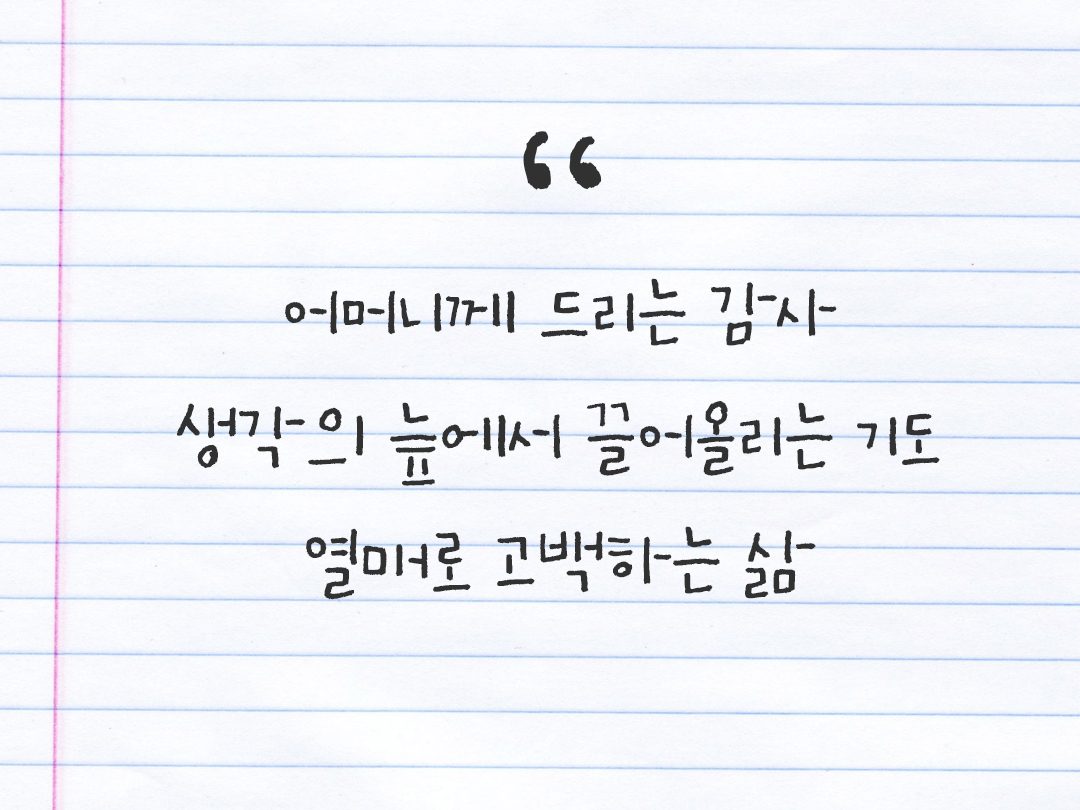 “
어머니께 드리는 감사
생각의 늪에서 끌어올리는 기도
열매로 고백하는 삶